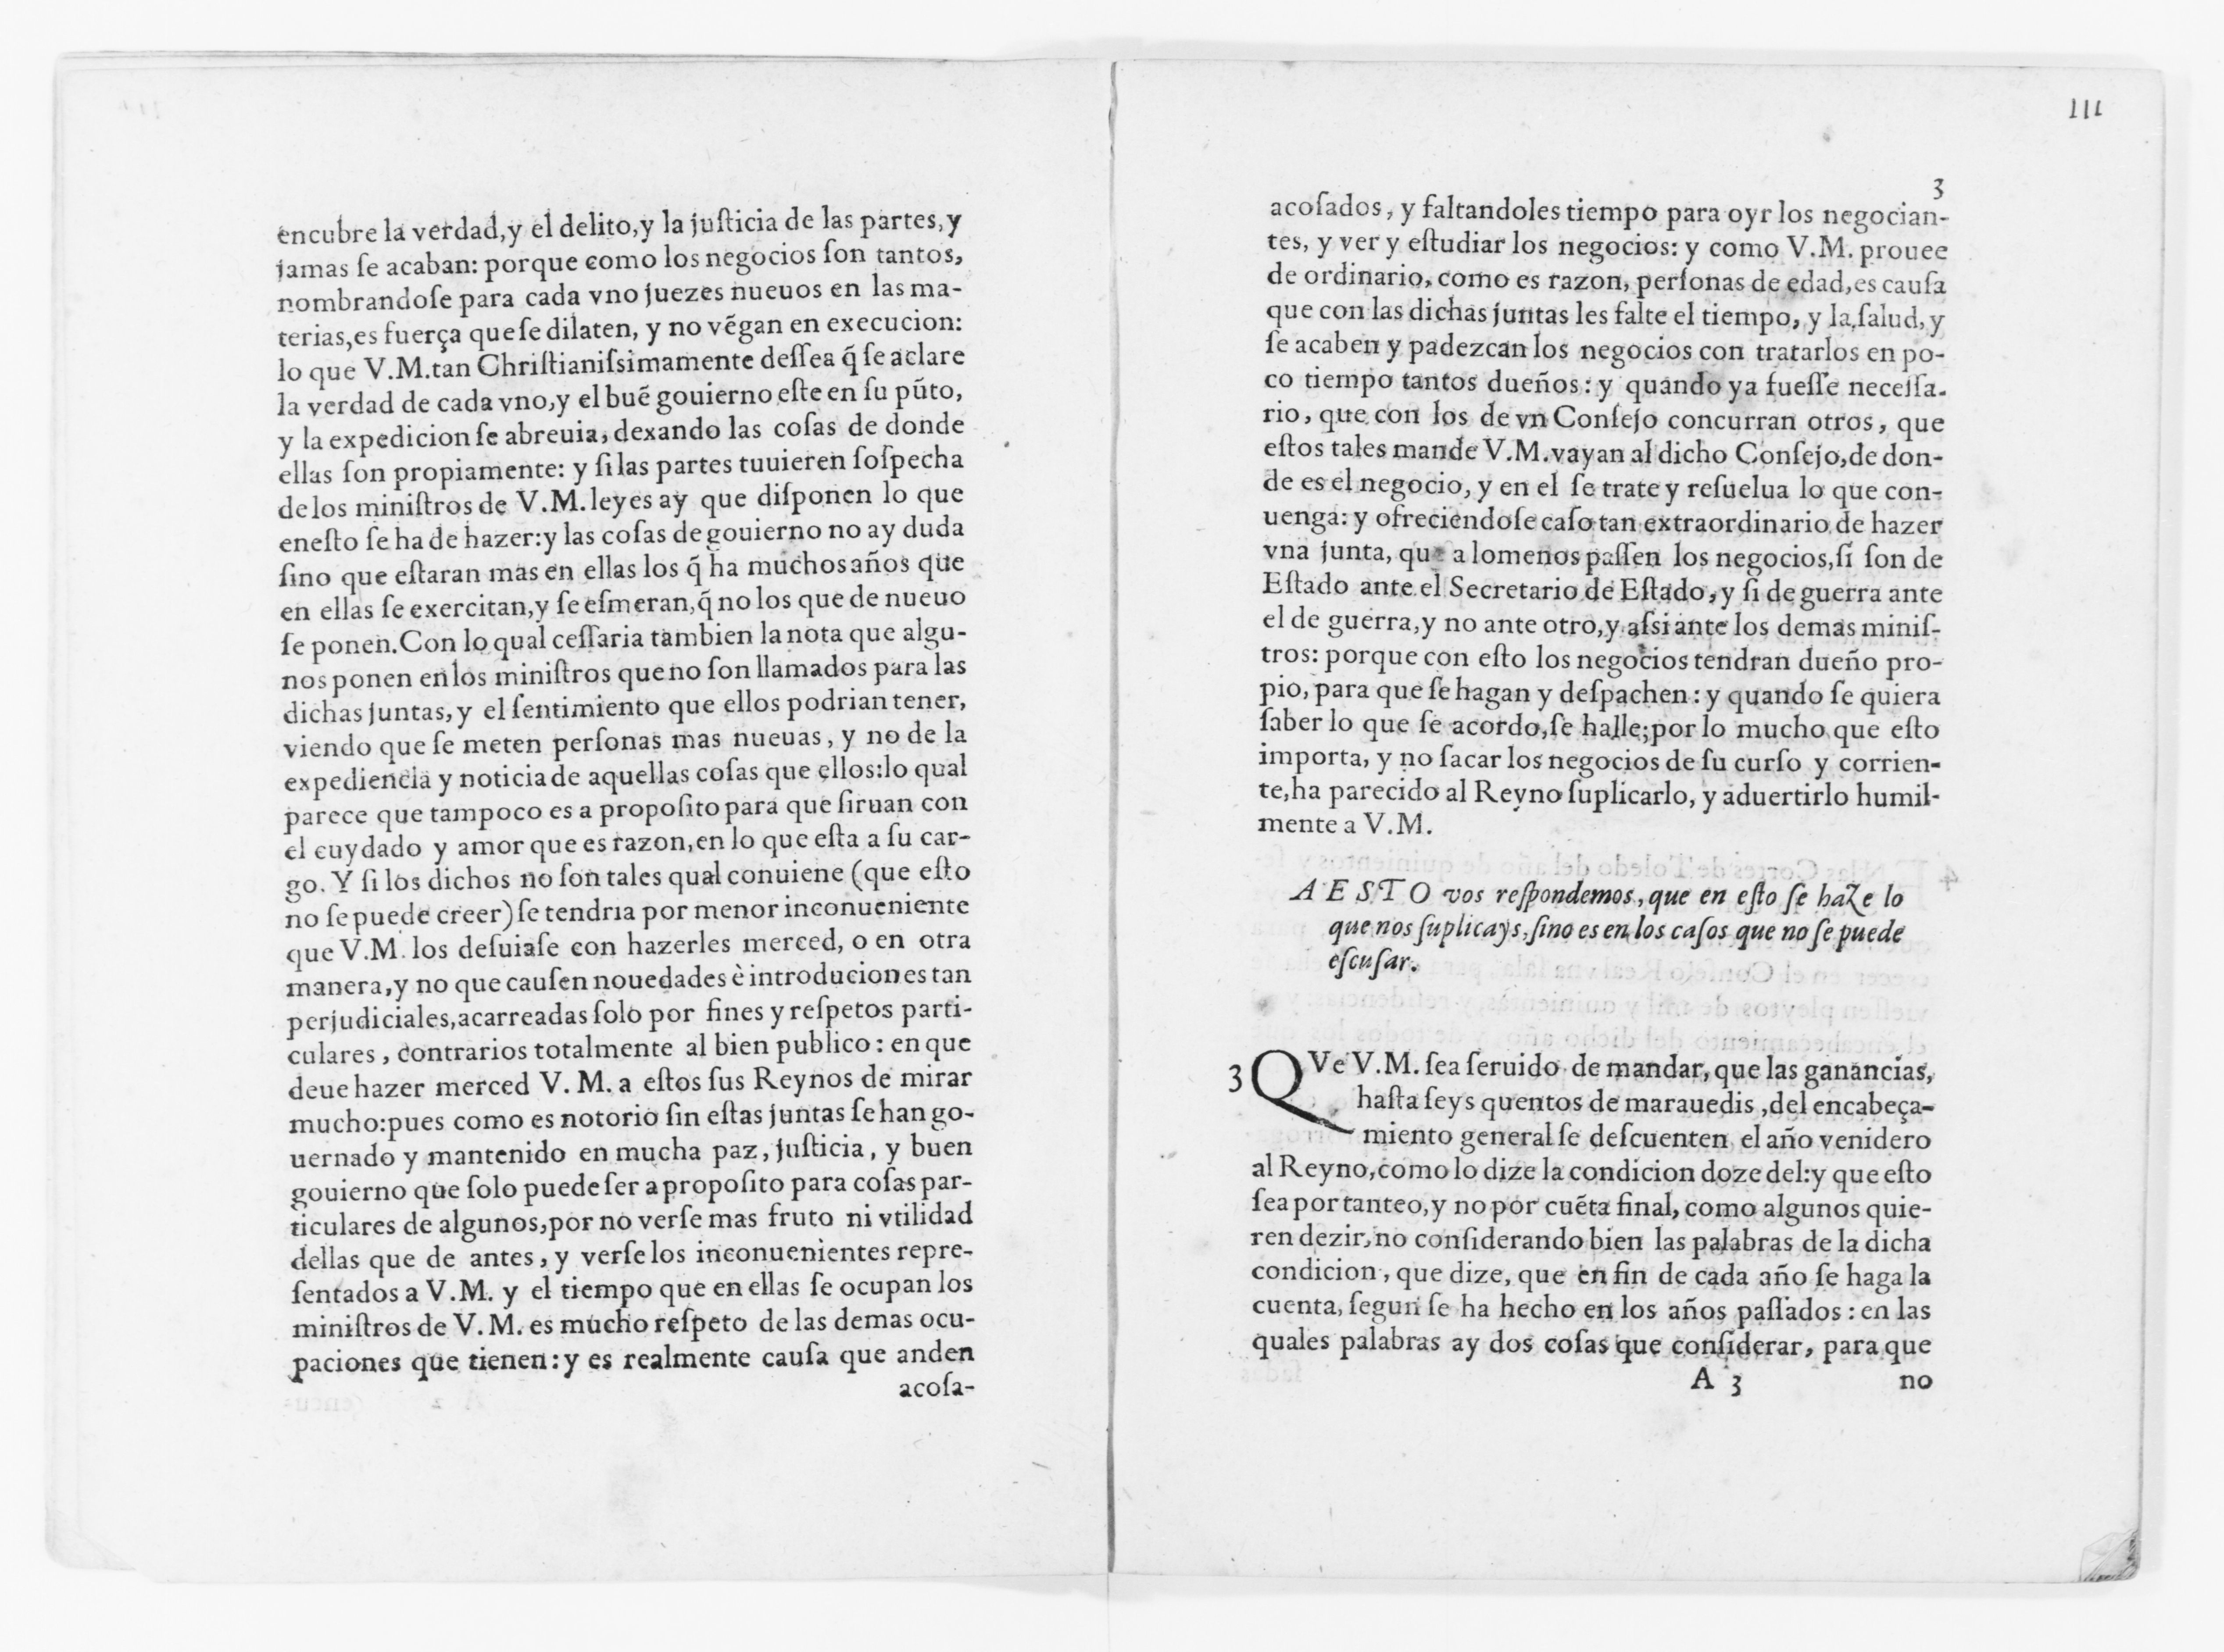 encubre la verdad,y el delito,y la juſticia de las partes,y
jamas ſe acaban: porque como los negocios ſon tantos,
nombrandoſe para cada vno juezes nueuos en las ma-
terias,es fuerça que ſe dilaten, y no vẽgan en execucion:
lo que V.M.tan Chriſtianiſsimamente deſſea q̃ ſe aclare
la verdad de cada vno,y el buẽ gouierno eſte en ſu pũto,
y la expedicion ſe abreuia, dexando las coſas de donde
ellas ſon propiamente: y ſi las partes tuuieren ſoſpecha
de los miniſtros de V.M.leyes ay que diſponen lo que
eneſto ſe ha de hazer:y las coſas de gouierno no ay duda
ſino que eſtaran mas en ellas los q̃ ha muchos años que
en ellas ſe exercitan,y ſe eſmeran,q̃ no los que de nueuo
ſe ponen.Con lo qual ceſſaria tambien la nota que algu-
nos ponen en los miniſtros que no ſon llamados para las
dichas juntas,y el ſentimiento que ellos podrian tener,
viendo que ſe meten perſonas mas nueuas, y no de la
expediencia y noticia de aquellas coſas que ellos:lo qual
parece que tampoco es a propoſito para que ſiruan con
el cuydado y amor que es razon,en lo que eſta a ſu car-
go. Y ſi los dichos no ſon tales qual conuiene (que eſto
no ſe puede creer) ſe tendria por menor inconueniente
que V.M. los deſuiaſe con hazerles merced, o en otra
manera,y no que cauſen nouedades è introduciones tan
perjudiciales,acarreadas ſolo por fines y reſpetos parti-
culares, contrarios totalmente al bien publico: en que
deue hazer merced V. M. a eſtos ſus Reynos de mirar
mucho:pues como es notorio ſin eſtas juntas ſe han go-
uernado y mantenido en mucha paz, juſticia, y buen
gouierno que ſolo puede ſer a propoſito para coſas par-
ticulares de algunos,por no verſe mas fruto ni vtilidad
dellas que de antes, y verſe los inconuenientes repre-
ſentados a V.M. y el tiempo que en ellas ſe ocupan los
miniſtros de V.M. es mucho reſpeto de las demas ocu-
paciones que tienen: y es realmente cauſa que anden
acoſa-
111
3
acoſados, y faltandoles tiempo para oyr los negocian-
tes, y ver y eſtudiar los negocios: y como V.M. prouee
de ordinario, como es razon, perſonas de edad,es cauſa
que con las dichas juntas les falte el tiempo, y la ſalud, y
ſe acaben y padezcan los negocios con tratarlos en po-
co tiempo tantos dueños: y quando ya fueſſe neceſſa-
rio, que con los de vn Conſejo concurran otros, que
eſtos tales mande V.M.vayan al dicho Conſejo,de don-
de es el negocio, y en el ſe trate y reſuelua lo que con-
uenga: y ofreciendoſe caſo tan extraordinario de hazer
vna junta, que a lo menos paſſen los negocios,ſi ſon de
Eſtado ante el Secretario de Eſtado, y ſi de guerra ante
el de guerra,y no ante otro,y aſsi ante los demas miniſ-
tros: porque con eſto los negocios tendran dueño pro-
pio, para que ſe hagan y deſpachen: y quando ſe quiera
ſaber lo que ſe acordo,ſe halle;por lo mucho que eſto
importa, y no ſacar los negocios de ſu curſo y corrien-
te,ha parecido al Reyno ſuplicarlo, y aduertirlo humil-
mente a V.M.
A ESTO vos reſpondemos, que en eſto ſe haze lo
que nos ſuplicays, ſino es en los caſos que no ſe puede
eſcuſar.
3 QVe V.M. ſea ſeruido de mandar, que las ganancias,
haſta ſeys quentos de marauedis ,del encabeça-
miento general ſe deſcuenten el año venidero
al Reyno,como lo dize la condicion doze del:y que eſto
ſea por tanteo,y no por cuẽta final, como algunos quie-
ren dezir, no conſiderando bien las palabras de la dicha
condicion, que dize, que en fin de cada año ſe haga la
cuenta, ſegun ſe ha hecho en los años paſſados: en las
quales palabras ay dos coſas que conſiderar, para que
A 3 no